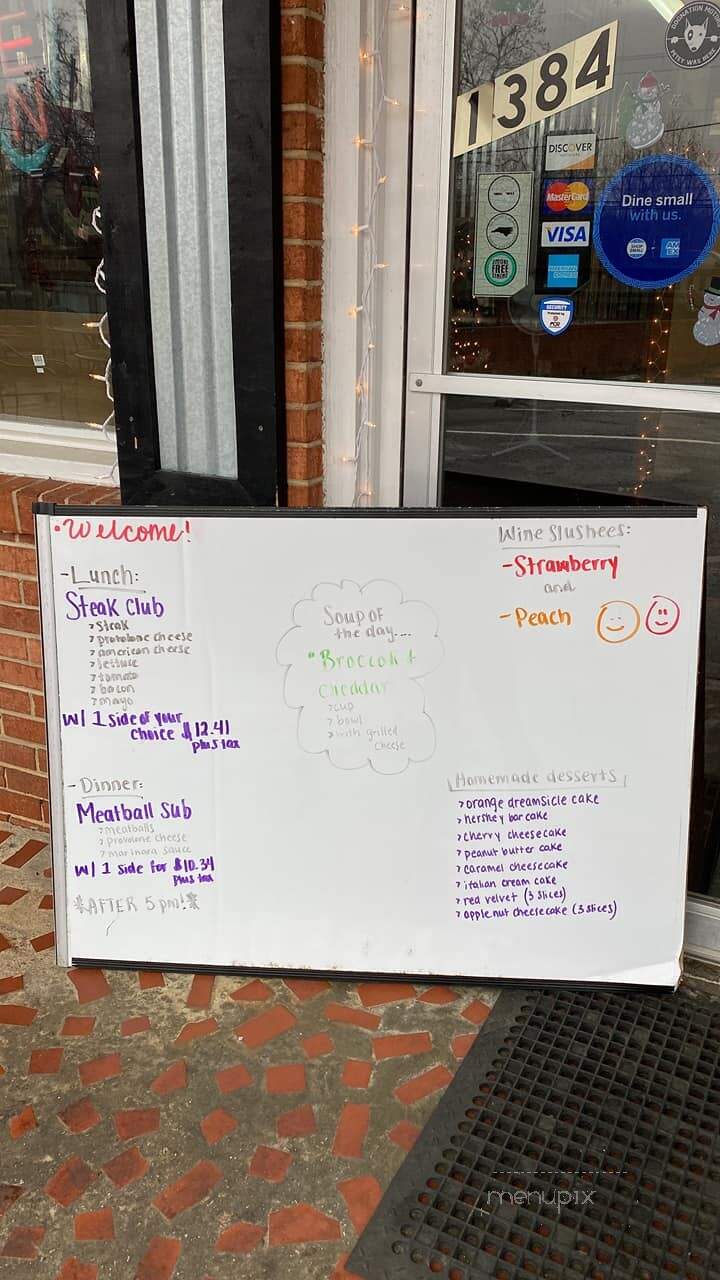 1384
DOGNATION MUTT
PETEY WAS HERE
DISCOVER
MasterCard
VISA
AMERICAN EXPRESS
FREE
SECURITY
Dine small
with us.
SHOP SMALL
AM EX
•Welcome!
-Lunch:
Steak Club
>steak
>provolone cheese
>american cheese
>lettuce
>tomato
>bacon
>mayo
w/ 1 side of your
choice $12.41
plus tax
-Dinner:
Meatball Sub
>meatballs
>provolone cheese
>marinara sauce
w/ 1 side for $10.34
plus tax
*AFTER 5pm!*
Soup of
the day...
"Broccoli &
cheddar
>cup
>bowl
>with grilled
cheese
Wine Slushees:
-Strawberry
and
-Peach
Homemade desserts
>orange dreamsicle cake
>hershey bar cake
>cherry cheesecake
>peanut butter cake
>caramel cheesecake
>italian cream cake
>red velvet (3 slices)
>apple nut cheesecake (3 slices)
menupix